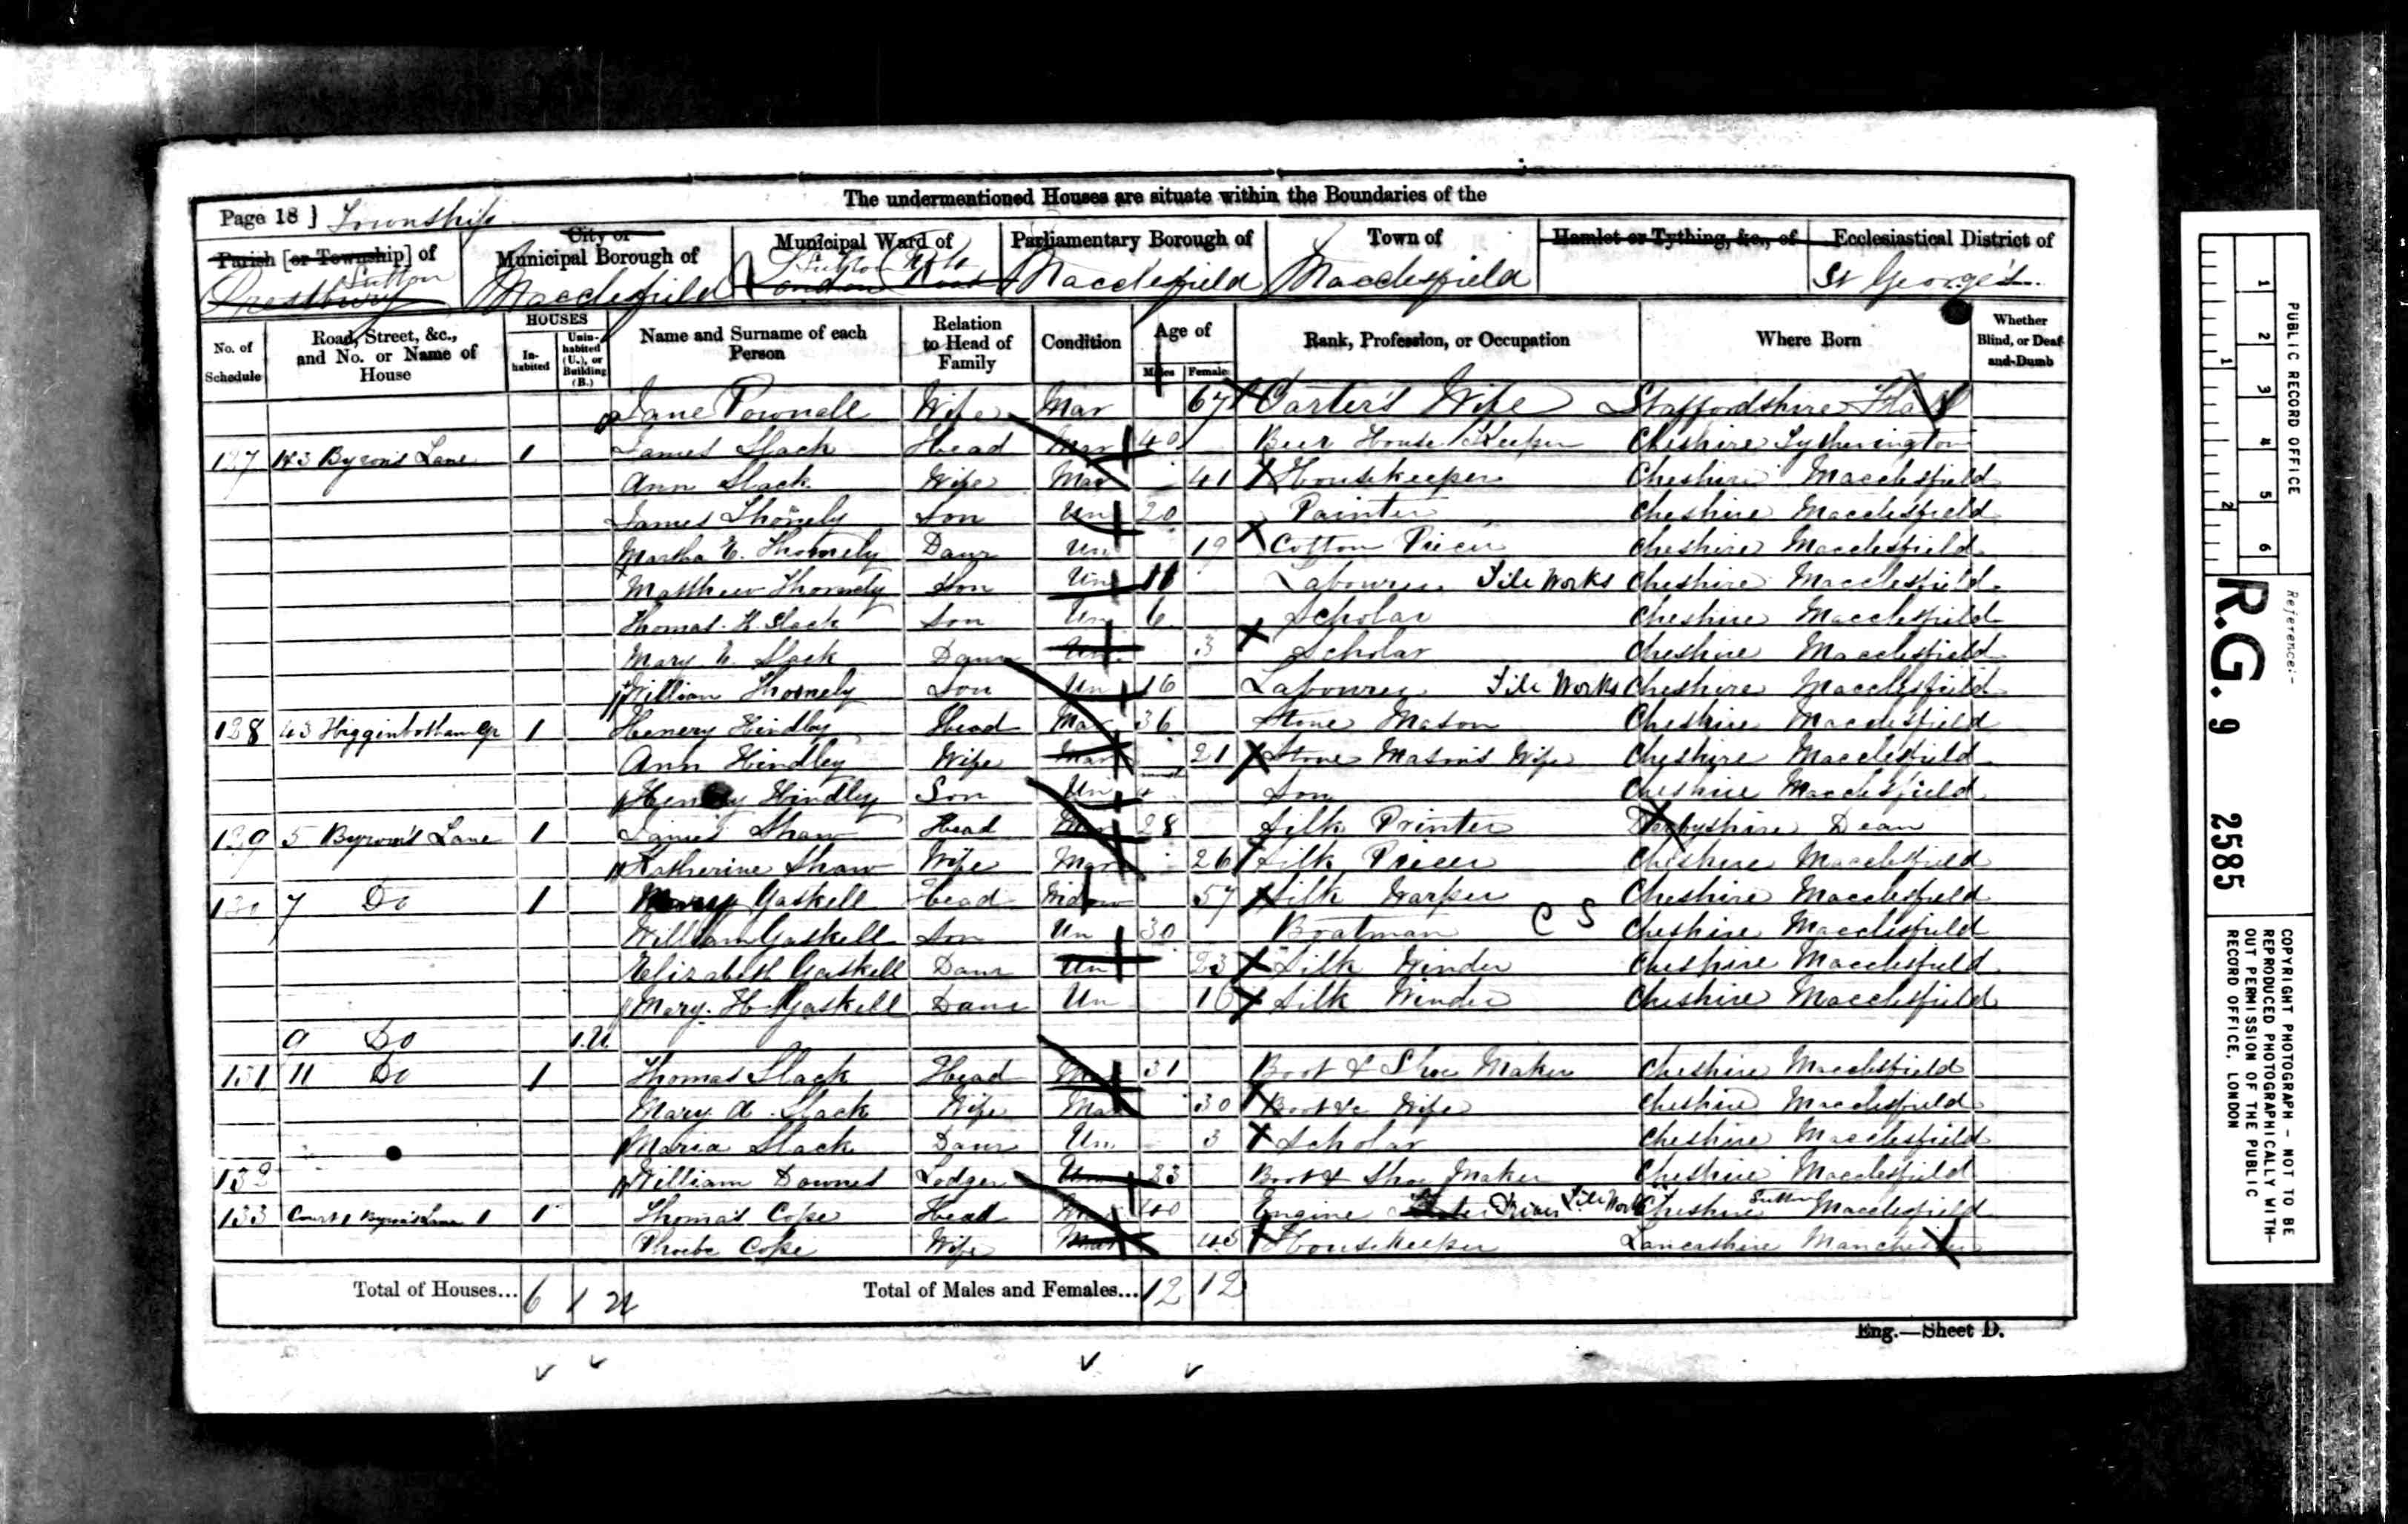 The undermentioned Houses are situate within the Boundaries of the
Page 18 } Township
Parish [or Township] of
City or Municipal Borough of
Municipal Ward of
Parliamentary Borough of
Town of
Hamlet or Tything, &c., of
Ecclesiastical District of
Prestbury Sutton
Macclesfield
Sutton
London Road
Macclesfield
Macclesfield
St George's
No. of Schedule
Road, Street, &c., and No. or Name of House
HOUSES
In-habited
Unin-habited (U.), or Building (B.)
Name and Surname of each Person
Relation to Head of Family
Condition
Age of
Males
Females
Rank, Profession, or Occupation
Where Born
Whether Blind, or Deaf-and-Dumb
Jane Pownall Wife Mar 67 Carter's Wife Staffordshire
127 143 Byron's Lane 1 James Slack Head Mar 40 Beer House Keeper Cheshire Tytherington
Ann Slack Wife Mar 41 Housekeeper Cheshire Macclesfield
James Thornely Son Un 20 Painter Cheshire Macclesfield
Martha E. Thornely Daur Un 19 Cotton Piecer Cheshire Macclesfield
Matthew Thornely Son Un 11 Labourer Tile Works Cheshire Macclesfield
Thomas H. Slack Son Un 6 Scholar Cheshire Macclesfield
Mary E. Slack Daur Un 3 Scholar Cheshire Macclesfield
William Thornely Son Un 16 Labourer Tile Works Cheshire Macclesfield
128 43 Higginbotham 1 Henery Hindley Head Mar 36 Stone Mason Cheshire Macclesfield
Ann Hindley Wife Mar 21 Stone Mason's Wife Cheshire Macclesfield
Henry Hindley Son Un Son Cheshire Macclesfield
129 5 Byrom's Lane 1 James Shaw Head Mar 28 Silk Printer Derbyshire Dean
Katherine Shaw Wife Mar 26 Silk Piecer Cheshire Macclesfield
130 7 Do 1 Mary Gaskell Head Widow 57 Silk Warper Cheshire Macclesfield
William Gaskell Son Un 30 Boatman C S Cheshire Macclesfield
Elizabeth Gaskell Daur Un 23 Silk Winder Cheshire Macclesfield
Mary H Gaskell Daur Un 16 Silk Winder Cheshire Macclesfield
9 Do 1.U
131 11 Do 1 Thomas Slack Head Mar 31 Boot & Shoe Maker Cheshire Macclesfield
Mary A. Slack Wife Mar 30 Boot &c Wife Cheshire Macclesfield
Maria Slack Daur Un 3 Scholar Cheshire Macclesfield
132 William Downes Lodger Un 23 Boot & Shoe Maker Cheshire Macclesfield
133 Court 1 Byron's Lane 1 1 Thomas Cope Head Mar 40 Engine Driver Tile Works Cheshire Sutton Macclesfield
Phoebe Cope Wife Mar 45 Housekeeper Lancashire Manchester
Total of Houses... 6 1 U
Total of Males and Females... 12 12
Eng.—Sheet D.
PUBLIC RECORD OFFICE
1 2 3 4 5 6
1 2
Reference:-
R.G. 9 2585
COPYRIGHT PHOTOGRAPH - NOT TO BE
REPRODUCED PHOTOGRAPHICALLY WITH-
OUT PERMISSION OF THE PUBLIC
RECORD OFFICE, LONDON